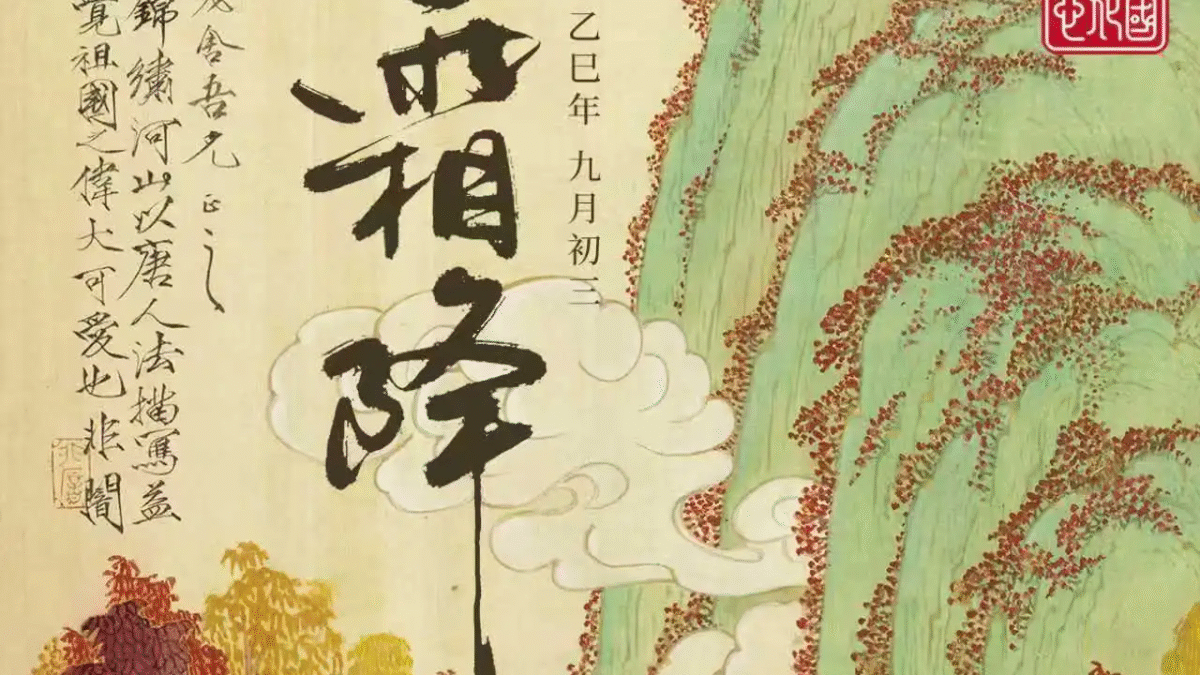 乙巳年 九月初三
霜降
舍吾兄正之
錦繡河山以唐人法描寫益
覺祖國之偉大可愛也 非闇